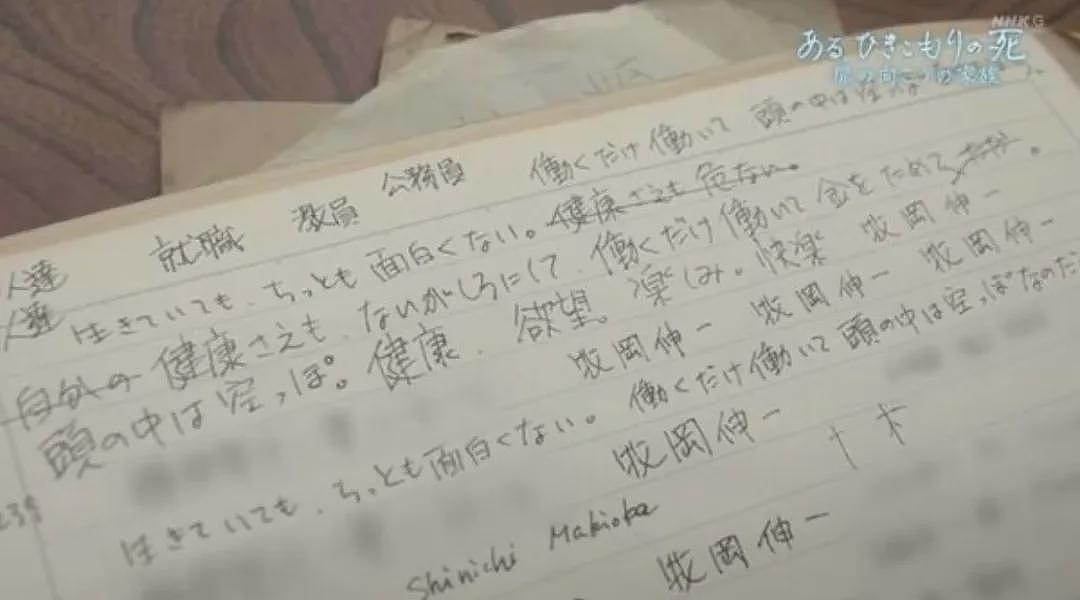 NHK G
あるひきこもりの死
扉の向こうの家族
就職 教員 公務員 働くだけ働いて 頭の中は空
人達 生きていても、ちっとも面白くない。健康さえも危ない。
人達 健康さえも、ないがしろにして、働くだけ働いて金をためて
自分の 健康、欲望。楽しみ。快楽 牧岡伸一
頭の中は空っぽ。 牧岡伸一 牧岡伸一 牧岡伸一
生きていても、ちっとも面白くない。働くだけ働いて頭の中は空っぽなのだ
牧岡伸一
Shinichi Makioka
牧岡伸一